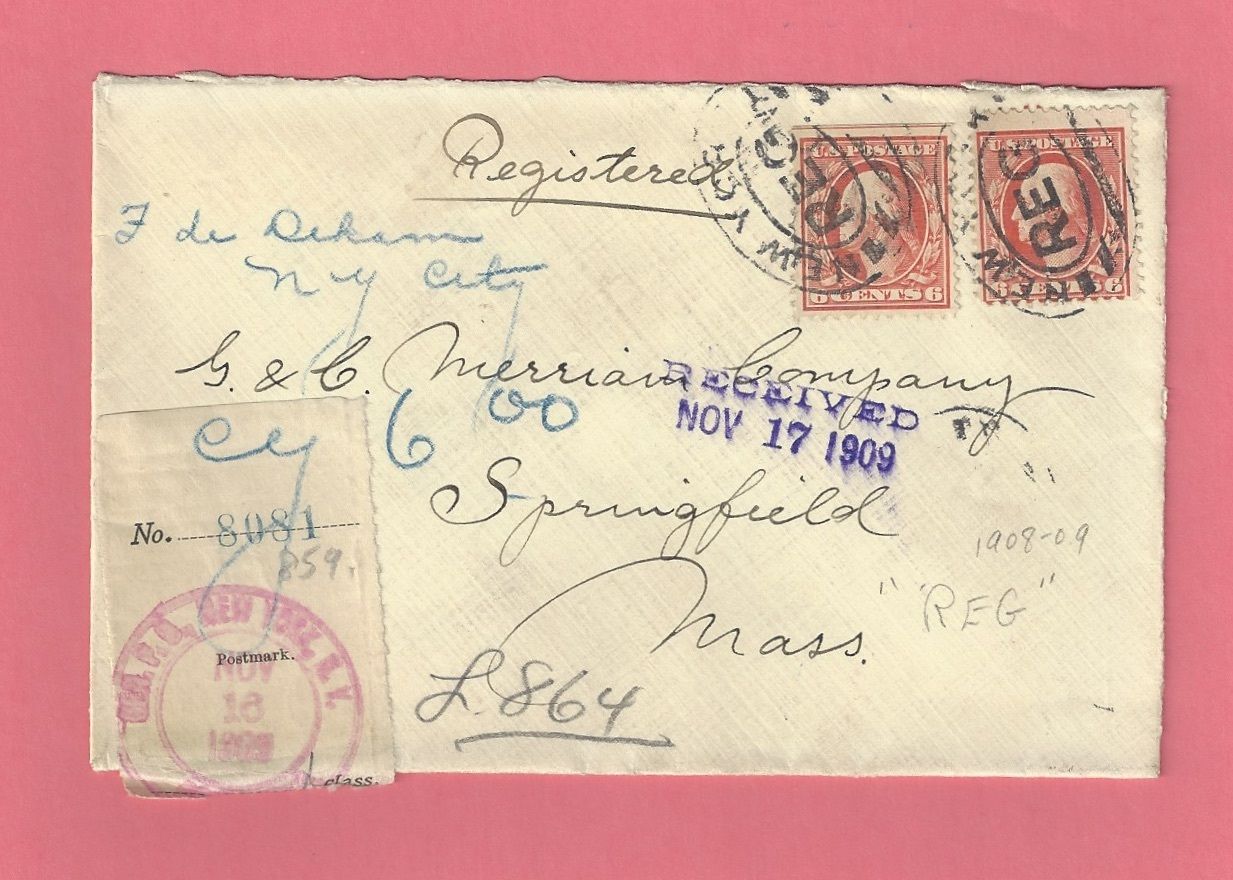 Registered
U.S. POSTAGE
6 CENTS 6
U.S. POSTAGE
6 CENTS 6
NEW YORK
REG
NEW
REG
N Y City
G. & C. Merriam Company
RECEIVED
NOV 17 1909
6 00
Springfield
Mass.
No. 8081
859.
NEW YORK, N.Y.
Postmark.
NOV
16
1909
class.
L.864
1908-09
"REG"